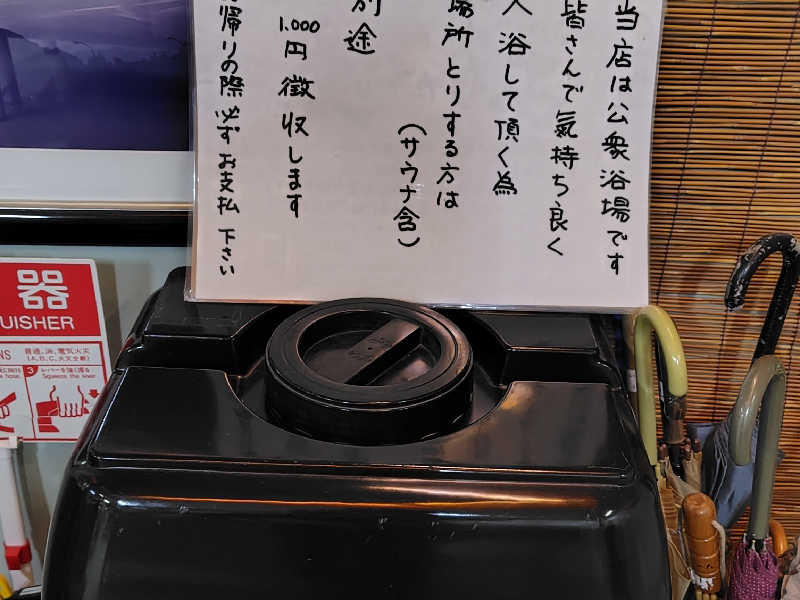 当店は公衆浴場です
皆さんで気持ち良く
入浴して頂く為
場所とりする方は
(サウナ含)
別途
1.000円徴収します
帰りの際必ずお支払下さい
器
UISHER
普通、油、電気火災
(A,B,C,火災)
3 レバーを強く握る
Squeeze the lever.